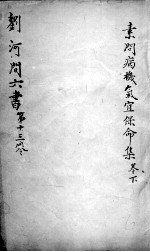 素問病機氣宜保命集 卷下
劉河間六書 第十三冊